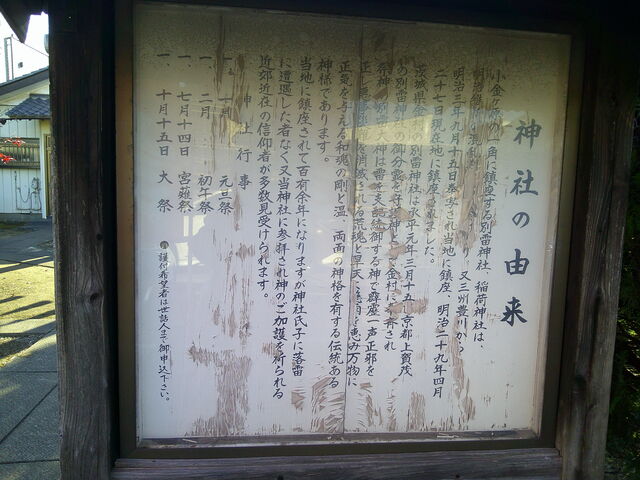 神社の由来
小金ヶ原の一角に鎮座する別雷神社、稲荷神社は、
明治 又三州豊川から
明治三年九月十五日奉写され当地に鎮座、明治二十九年四月
二十七日現在地に鎮座されました。
茨城県 の別雷神社は永平元年三月十五日京都上賀茂
の別雷神社の御分霊を 金村に され
祭神 別雷大神は雷を支配統御する神で霹靂一声正邪を
正し 消滅される荒魂と旱天に慈雨を恵み万物に
正気を与える和魂の剛と温、両面の神格を有する伝統ある
神様であります。
当地に鎮座されて百有余年になりますが神社氏子に落雷
に遭遇した者なく又当神社に参拝され神のご加護を祈られる
近郊近在の信仰者が多数見受けられます。
神社行事
一、一月 元旦祭
一、二月 初午祭
一、七月十四日 宮薙祭
一、十月十五日 大祭
護符希望者は世話人まで御申込下さい。